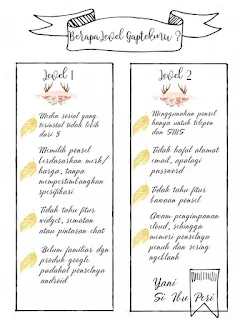 Berapa Level Gaptekmu ?
Level 1
Media sosial yang
terinstal tidak lebih
dari 5
Memilih ponsel
berdasarkan merk/
harga, tanpa
mempertimbangkan
spesifikasi
Tidak tahu fitur
widget, sematan
atau pintasan chat
Belum familiar dgn
produk google
padahal ponselnya
android
Level 2
Menggunakan ponsel
hanya untuk telepon
dan SMS
Tidak hafal alamat
email, apalagi
password
Tidak tahu fitur
bawaan ponsel
Awam penyimpanan
cloud, sehingga
memori ponselnya
penuh dan sering
ngeblank
Yani
Si Ibu Peri